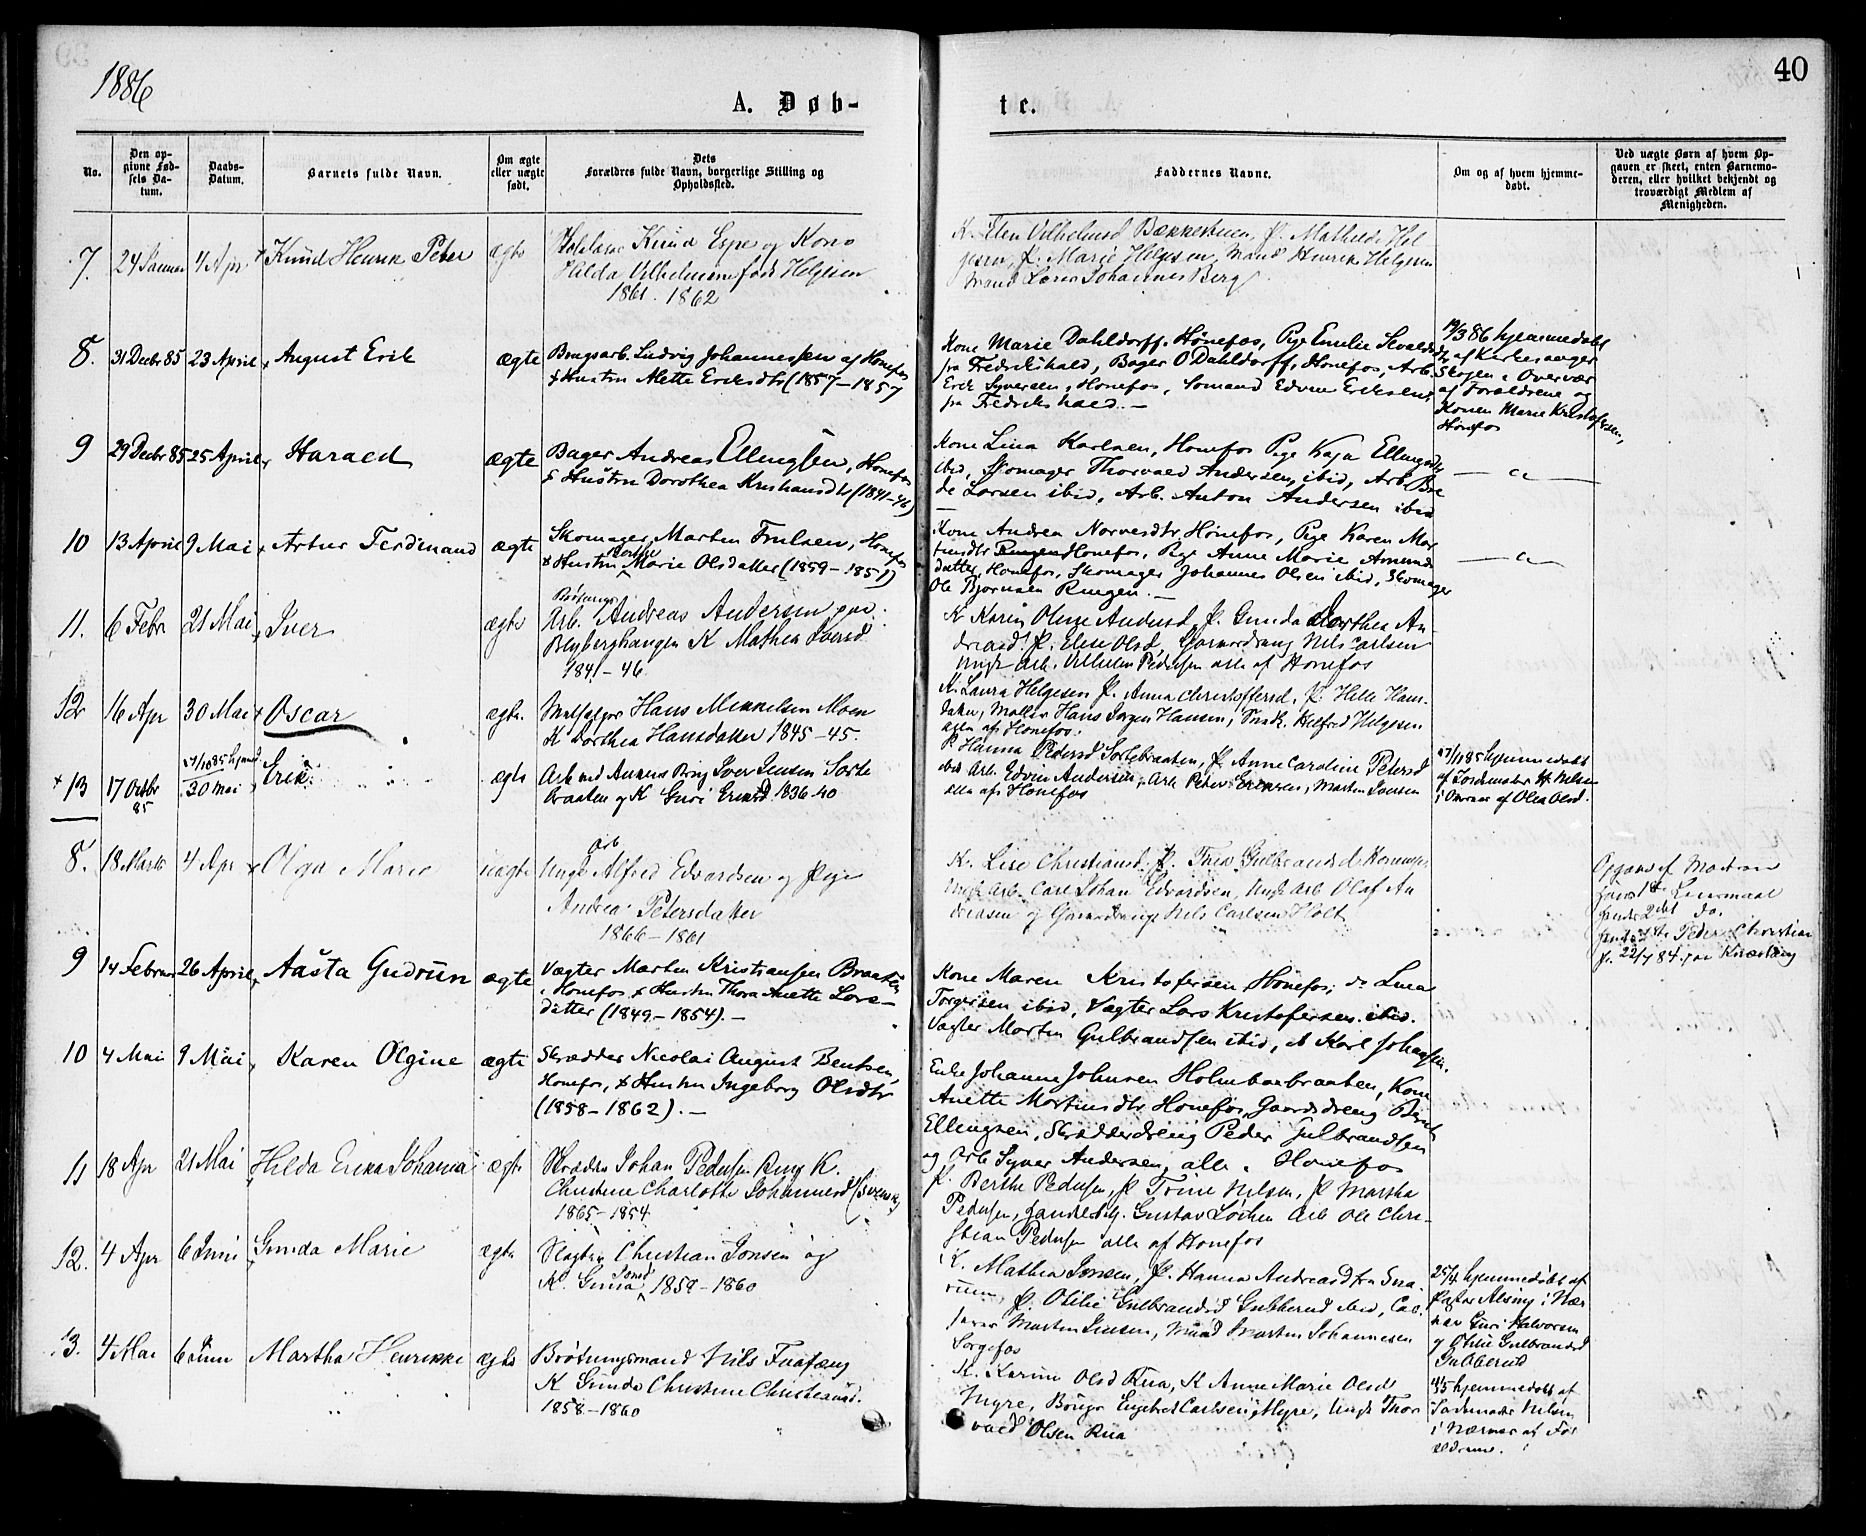 1886
A. Døb-
te.
40
No.
Den op-
givne Fød-
sels Da-
tum.
Daabs-
Datum.
Barnets fulde Navn.
Om ægte
eller uægte
født.
Dets
Forældres fulde Navn, borgerlige Stilling og
Opholdssted.
Faddernes Navne.
Om og af hvem hjemme-
døbt.
Ved uægte Børn af hvem Op-
gaven er skeet, enten Barnemo-
deren, eller hvilket bekjendt og
troværdigt Medlem af
Menigheden.
7. 24 Januar 4 Apr Knud Henrik Peter ægte Knud Espe og Kone
Hilda Vilhelmine født Helgesen
1861. 1862
K. Elen Vilhelmsd Bækkestuen, P. Mathilde Hel
gesen, P. Marie Helgesen, Mand Henrik Helgesen
Mand Lærer Johannes Berg
8. 31 Decbr 85 23 April August Erik ægte Brugsarb. Ludvig Johannessen af Hønefos
& Hustru Mette Eriksdtr (1857-1857
Kone Marie Dahldorff, Hønefos, Pige Emilie
fra Fredrikshald, Bager O Dahldorff, Hønefos, Arb.
Erik Syversen, Hønefos, Sømand Edvin Eriksen
fra Fredrikshald. -
19/3 86 hjemmedøbt
af Kirkesanger
Skogen i Overvær
af Forældrene og
Konen Marie Kristofersen,
Hønefos
9 29 Decbr 85 25 April Harald ægte Bager Andreas Ellingsen, Hønefos
& Hustru Dorothea Kristiansdtr (1841-46)
Kone Lina Karlsen, Hønefos Pige Kaja Ellingsdtr
ibid, Skomager Thorvald Andersen, ibid, Arb.
Larsen ibid, Arb. Anton Andersen ibid
— " —
10 13 April 9 Mai Artur Ferdinand ægte Skomager Martin Trulsen, Hønefos
& Hustru Marie Olsdatter (1859-1851)
Kone Andrea Narvesdtr Hønefos, Pige Karen Mar
tinsdtr Ringen Hønefos, Pige Anne Marie Amund
datter, Hønefos, Skomager Johannes Olsen ibid, Skomager
Ole Bjørnsen Ringen. -
— " —
11. 6 Febr 21 Mai Iver ægte Arb. Andreas Andersen paa
Blyberghaugen K Mathea Iversd
1841-46
K Karen Oline Andersd, P. Gunda Dorthea An
dreasd. P. Else Olsd, Gaardsdreng Nils Carlsen
Ungk Arb. Vilhelm Pedersen alle af Hønefos
12 16 Apr 30 Mai Oscar ægte. Hans Mikkelsen Moen
K Dorthea Hansdatter 1845-45.
K. Laura Helgesen P. Anna Christoffersd, P. Helle Hans
datter, Møller Hans Jørgen Hansen, Snedk. Helfred Helgesen
alle af Hønefos.
13 17 Octbr
85 30 Mai Erik ægte Arb ved Ankers Brug Iver Jensen Sorte
braaten og K Guri Eriksd. 1836-40
P. Hanna Pedersd Sortebraaten, P. Anne Caroline Petersd
ibid Arb. Edvin Andersen, Arb Peter Eriksen, Martin Iversen
alle af Hønefos
hjemmedøbt
af Jordemoder H. Nilsen
i Nærvær af Olea Olsd.
8. 18 Marts 4 Apr Olga Marie uægte Ungk Arb Alfred Edvardsen og Pige
Andrea Petersdatter
1866-1861
K. Lise Christiansd. P. Thea Gulbrandsd
Ungk Arb. Carl Johan Edvardsen, Ungk Arb Olaf An
dreasen og Gaardsdreng Nils Carlsen Holt
Opgave af Moderen
hans 1ste Leiermaal
hendes 2det do.
Peder Christian
22/7 84
9 14 Februar 26 April Aasta Gudrun ægte Vægter Martin Kristiansen Braaten
i Hønefos & Hustru Thora Anette Lars-
datter (1849-1854). -
Kone Maren Kristofersen Hønefos, do Lina
Torgersen ibid, Vægter Lars Kristofersen ibid.
Vægter Martin Gulbrandsen ibid, Karl Johansen.
10 4 Mai 9 Mai Karen Olgine ægte Skrædder Nicolai August Bentsen,
Hønefos, & Hustru Ingeborg Olsdtr
(1858-1862). -
Enke Johanne Johnsen Holmboebraaten, Kone
Anette Martinsdtr Hønefos, Gaardsdreng Bernt
Ellingsen, Skrædderdreng Peder Gulbrandsen
og Arb Syver Andersen, alle i Hønefos
11 18 Apr 21 Mai Hilda Erika Johanna ægte Skrædder Johan Pedersen Ring K.
Christine Charlotte Johannesd (Svensk)
1865-1854
P. Berthe Pedersen, P Trine Nilsen, P Martha
Pedersen, Handelsbtj. Gustav Løchen Arb Ole Chri-
stian Pedersen alle af Hønefos
12. 4 Apr 6 Juni Gunda Marie ægte Slagter Christian Jonsen og
K. Gunda 1859-1860
K. Mathea Jonsen, P. Hanna Andreasd fra Sna
rum, P. Otilie Gulbrandsd Gubberud ibid,
Martin Jensen, Mand Martin Johannesen
Sorgefos
25/4 hjemmedøbt af
Pastor Alsing i Nær
vær Guri Halvorsen
og Otilie Gulbrandsd
Gubberud
13. 4 Mai 6 Juni Martha Henrikke ægte Brøtningsmand Nils
K Gunda Christine Christiansd.
1858-1860
K. Karine Olsd Rua, K Anne Marie Olsd
Hyre, Bruger Engebret Carlsen Hyre, Ungk Thor
vald Olsen Rua
hjemmedøbt af
Jordemoder Nilsen
i Nærvær af For
ældrene.